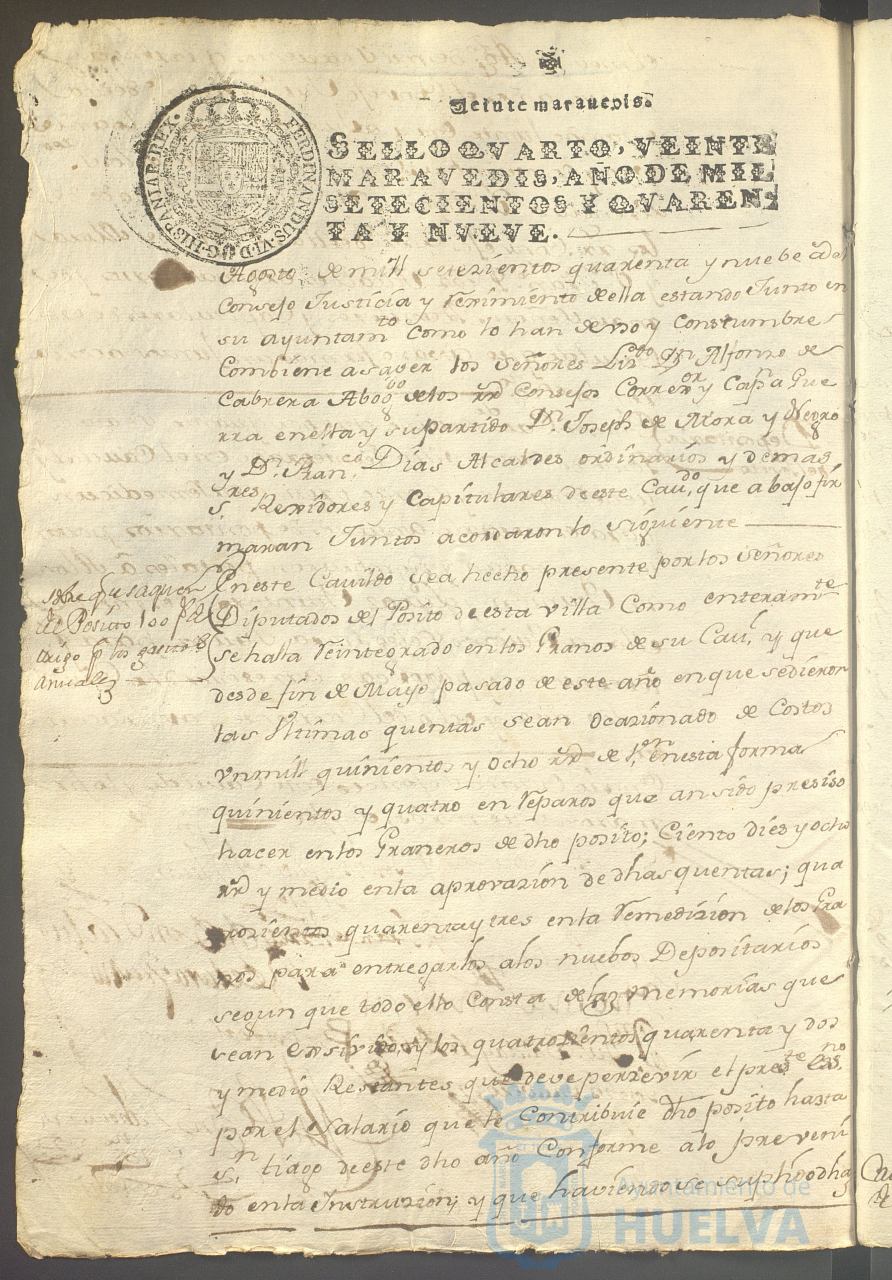 Veinte maravedis.
SELLO QVARTO, VEINTE
MARAVEDIS, AÑO DE MIL
SETECIENTOS Y QVAREN-
TA Y NVEVE.
FERDINANDUS.VI.D.G.HISPANIAR.REX.
Agosto de mill setezientos quarenta y nuebe
Consejo Justicia y Reximiento de ella estando Junto en
su ayuntamto Como lo han de uso y Constumbre
Combiene a saver los Señores Lizdo Dn Alfonso de
Cabrera Abogdo de los rrs Consejos Correxor y Capn a Gue
rra en esta y su partido Dn Joseph de Mora y Negro
y Dn Franco Dias Alcaldes ordinarios y demas
sres Rexidores y Capitulares de este Cavdo, que abajo fir
maran Juntos acordaron lo siguiente
En este Cavildo sea hecho presente por los Señores
Diputados del Posito de esta villa Como enteramte
se halla Reintegrado en los Granos de su Cau, y que
desde fin de Mayo pasado de este año en que se dieron
las Vltimas quentas sean ocazionado de Costos
vn mill quinientos y ocho rrs de Von en esta forma
quinientos y quatro en Reparos que an sido presiso
hacer en los Graneros de dho posito; Ciento dies y ocho
rrs y medio en la aprovazion de dhas quentas; qua
trosientos quarenta y tres en la Remedizion de los Gra
nos para entregarlos a los nuebos Depositarios
segun que todo ello Consta de las memorias que
sean exsivido, y los quatrozientos quarenta y dos
y medio Restantes que deve perzevir el preste esno
por el Salario que le Contribuie dho posito hasta
Sn tiago de este dho año Conforme a lo preveni
do en la Instruzion; y que haviendose suplido dha
sobre que saquen
del Posito 100 fs de
trigo pa los gastos
anuales
Ayuntamiento de
HUELVA